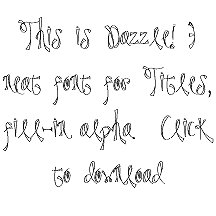 This is Dazzle! :)
neat font for Titles,
fill-in alpha. Click
to download